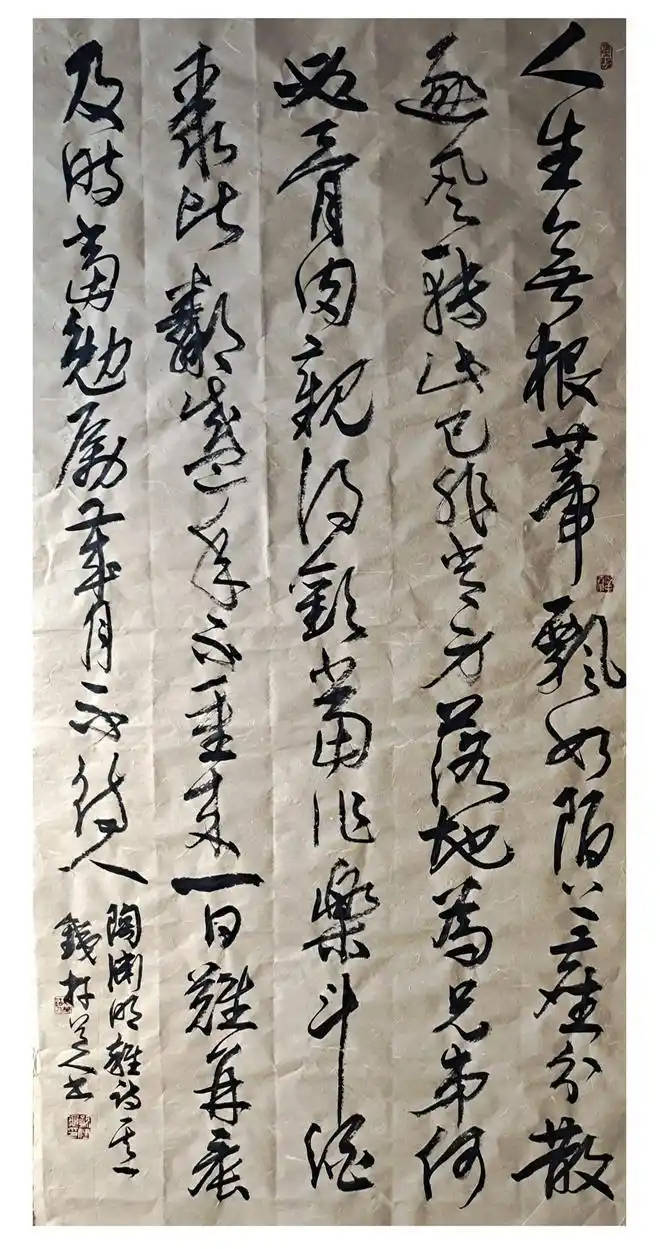 人生無根蒂飄如陌上塵分散
逐風轉此已非常身落地為兄弟何
必骨肉親得歡當作樂斗酒
聚比鄰盛年不重來一日難再晨
及時當勉勵歲月不待人
陶淵明雜詩其一
錢道人書